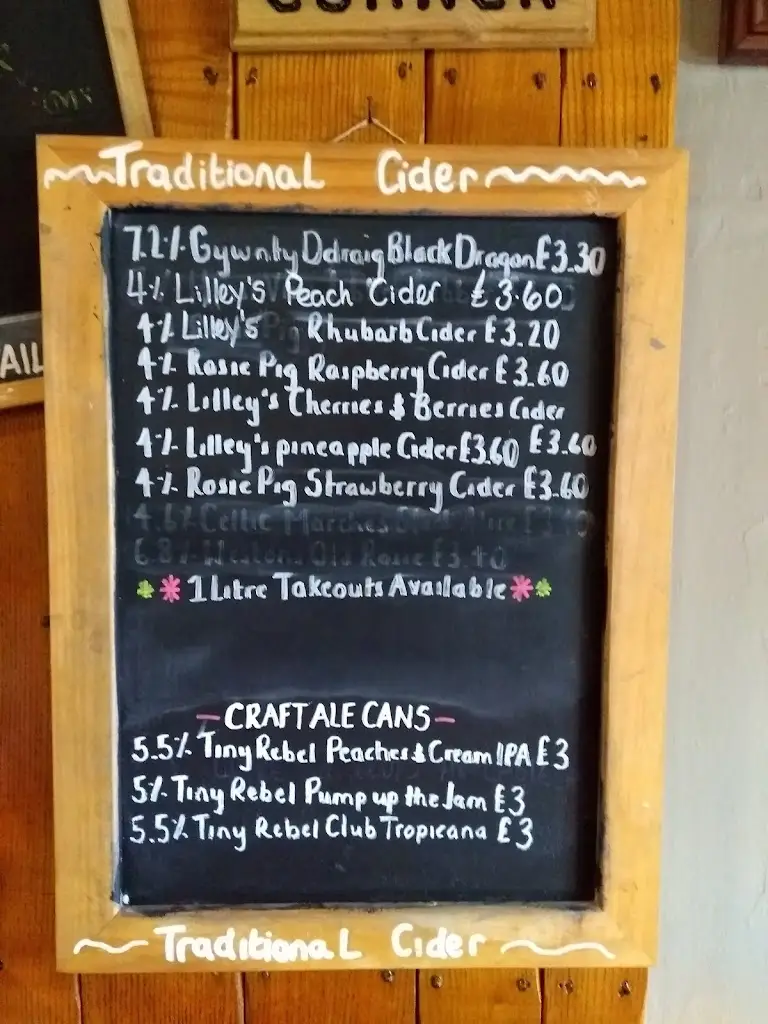 CORNER
AIL
Traditional Cider
7.2% Gywnty Ddraig Black Dragon £3.30
4% Lilley's Peach Cider £3.60
4% Lilley's Rhubarb Cider £3.20
4% Rosie Pig Raspberry Cider £3.60
4% Lilley's Cherries & Berries Cider
4% Lilley's pineapple Cider £3.60 £3.60
4% Rosie Pig Strawberry Cider £3.60
4.6% Celtic Marches
6.8% Westons Old Rosie £3.40
1 Litre Takeouts Available
CRAFT ALE CANS
5.5% Tiny Rebel Peaches & Cream IPA £3
5% Tiny Rebel Pump up the Jam £3
5.5% Tiny Rebel Club Tropicana £3
Traditional Cider